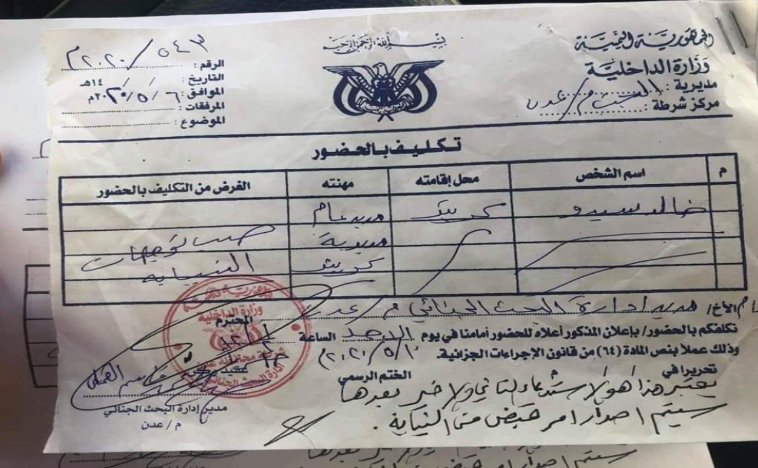 بسم الله الرحمن الرحيم
الجمهورية اليمنية
وزارة الداخلية
مديرية :
مركز شرطة :
الرقم : ٥٤٣ / ٢٠٢٠م
التاريخ : / / ١٤هـ
الموافق: ٦ / ٥ / ٢٠٢٠م
المرفقات :
الموضوع :
تكليف بالحضور
م اسم الشخص محل إقامته مهنته الغرض من التكليف بالحضور
خالد سيدو كريتر مدير عام حسب توجيهات
مديرية النيابة
كريتر
الأخ/ مدير إدارة البحث الجنائي م/عدن المحترم
نكلفكم بالحضور/ بإعلان المذكور أعلاه للحضور أمامنا في يوم الاحد الساعة
٢٠٢٠/٥/١٠م
وذلك عملاً بنص المادة (٦٤) من قانون الإجراءات الجزائية.
تحريراً في الختم الرسمي
يعتبر هذا هو الاستدعاء الثاني والاخير بعدها
سيتم اصدار امر قبض من النيابة.
مدير إدارة البحث الجنائي
م / عدن
وزارة الداخلية